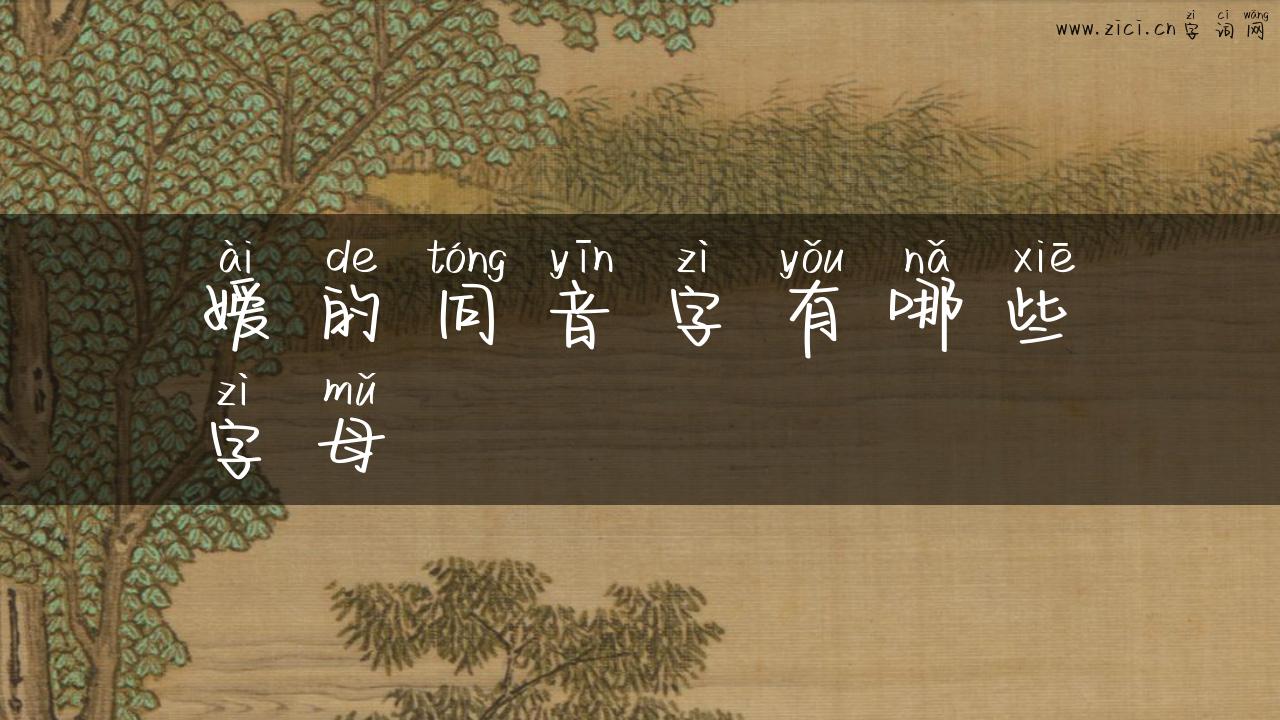 zì cí wǎng
www.zici.cn字词网
ài de tóng yīn zì yǒu nǎ xiē
嫒的同音字有哪些
zì mǔ
字母